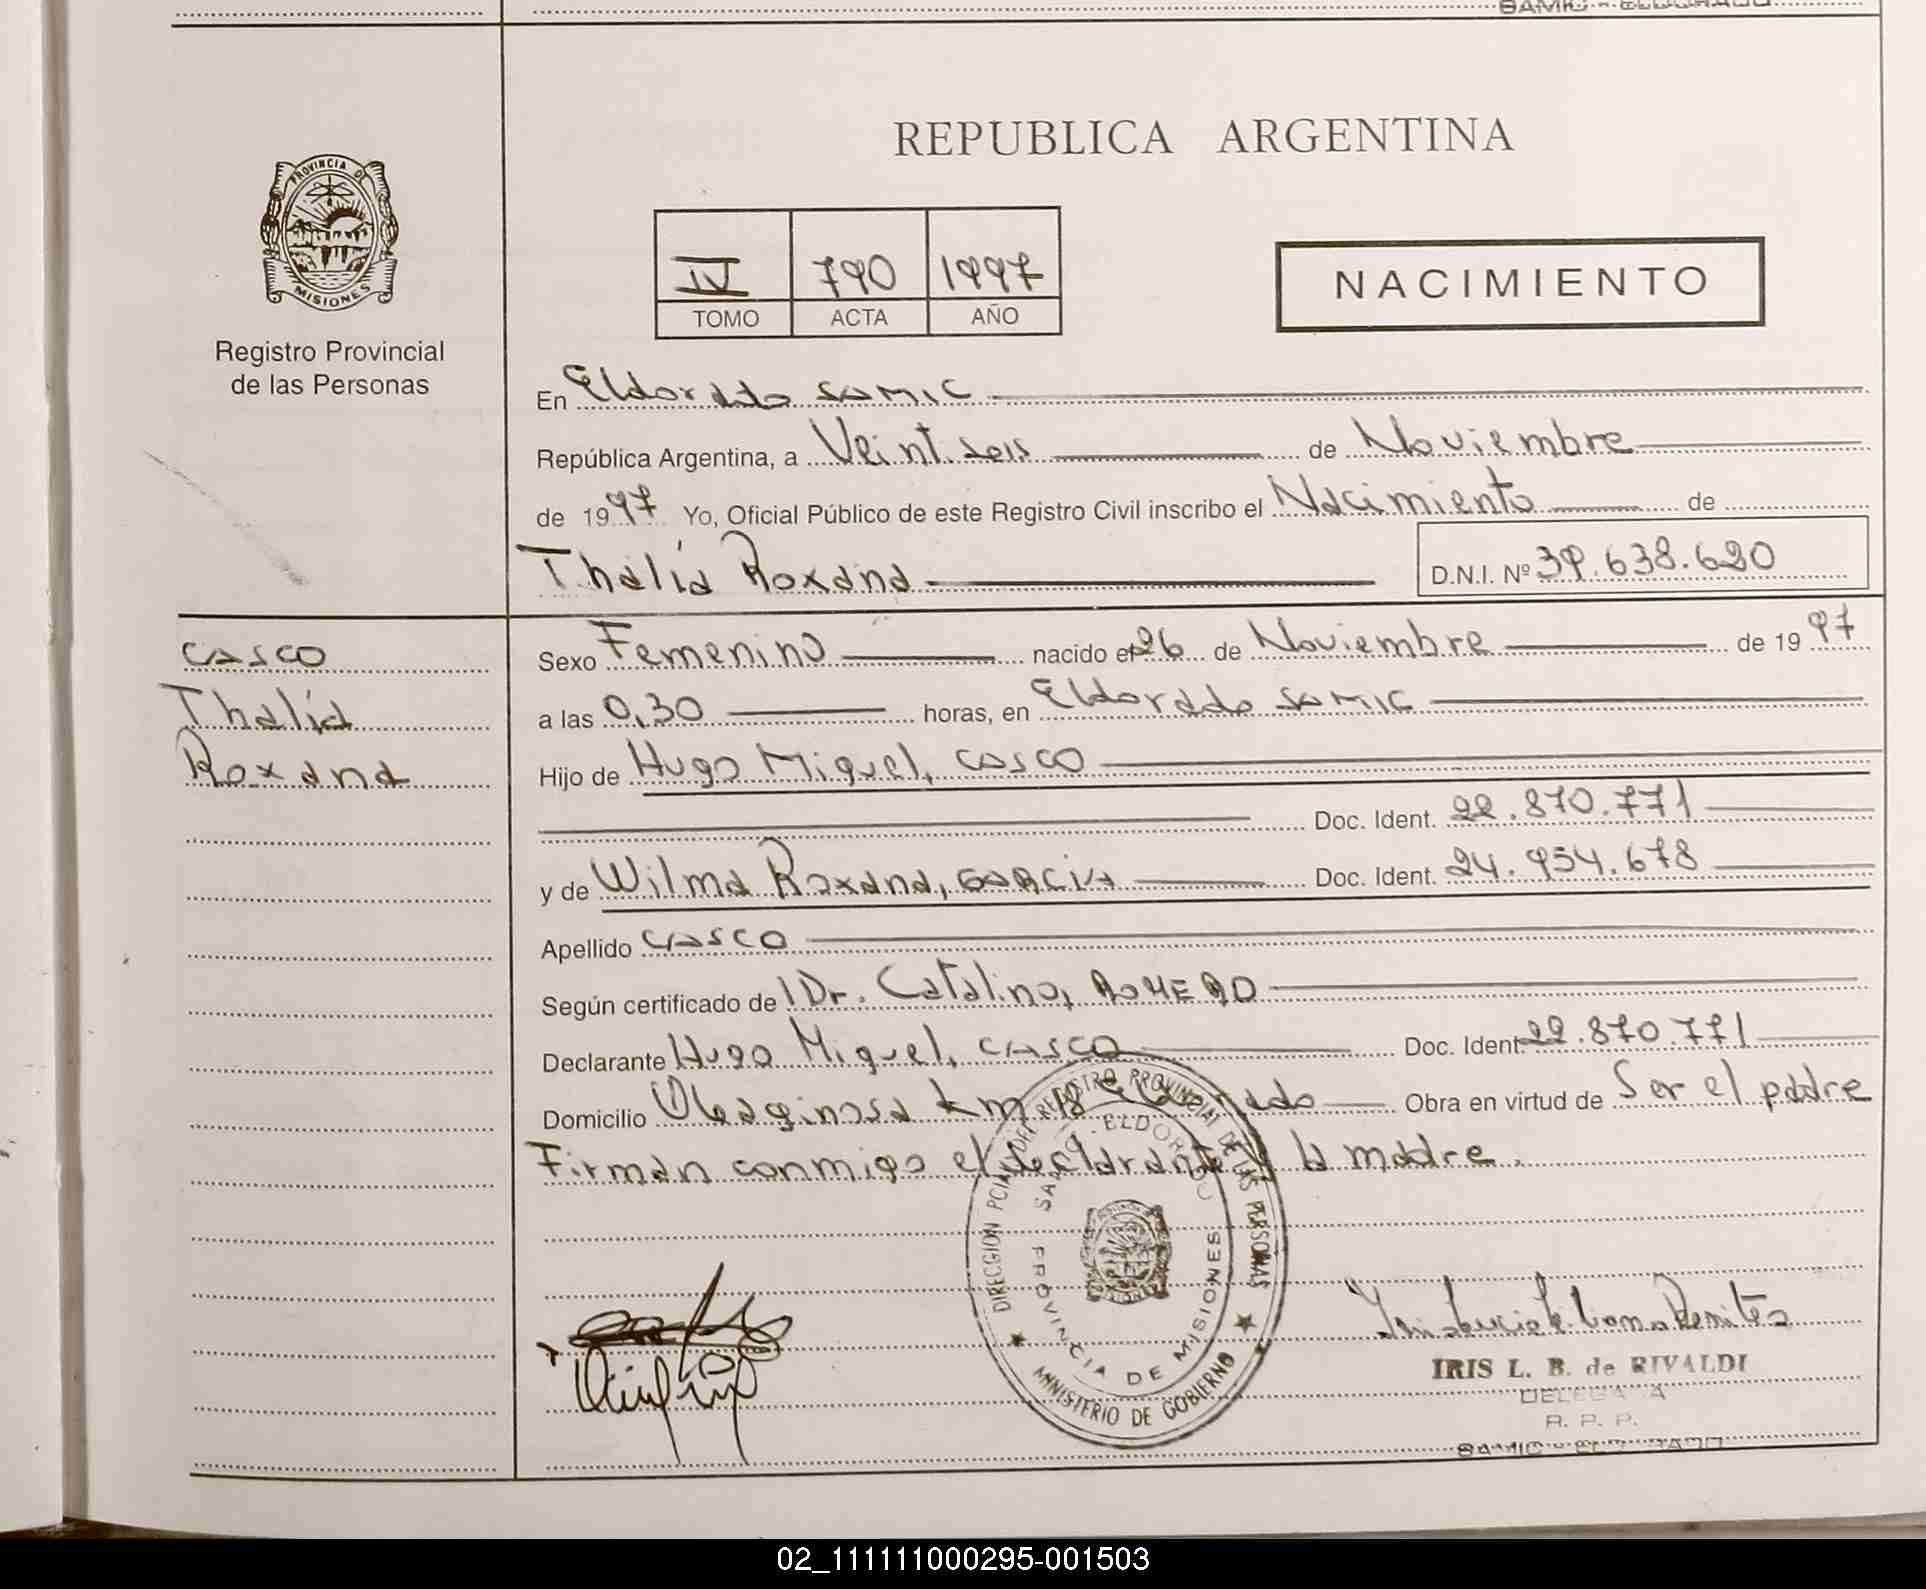 SAMIC - ELDORADO
REPUBLICA ARGENTINA
PROVINCIA DE
MISIONES
Registro Provincial
de las Personas
IV 790 1997
TOMO ACTA AÑO
NACIMIENTO
En Eldorado SAMIC
República Argentina, a Veintiseis de Noviembre
de 1997 Yo, Oficial Público de este Registro Civil inscribo el Nacimiento de
Thalía Roxana D.N.I. Nº 39.638.620
CASCO
Thalía
Roxana
Sexo Femenino nacido el 26 de Noviembre de 1997
a las 0,30 horas, en Eldorado SAMIC
Hijo de Hugo Miguel, CASCO
Doc. Ident. 22.870.771
y de Wilma Roxana, GARCIA Doc. Ident. 24.954.678
Apellido CASCO
Según certificado de Dr. Catalino, ROMERO
Declarante Hugo Miguel, CASCO Doc. Ident. 22.870.771
Domicilio Oleaginosa km 18 Eldorado Obra en virtud de Ser el padre
Firman conmigo el declarante y la madre.
DIRECCION PCIAL DEL REGISTRO PROVINCIAL DE LAS PERSONAS
SAMIC - ELDORADO
PROVINCIA DE MISIONES
MINISTERIO DE GOBIERNO
IRIS L. B. de RIVALDI
DELEGADA
R. P. P.
SAMIC - ELDORADO
02_111111000295-001503